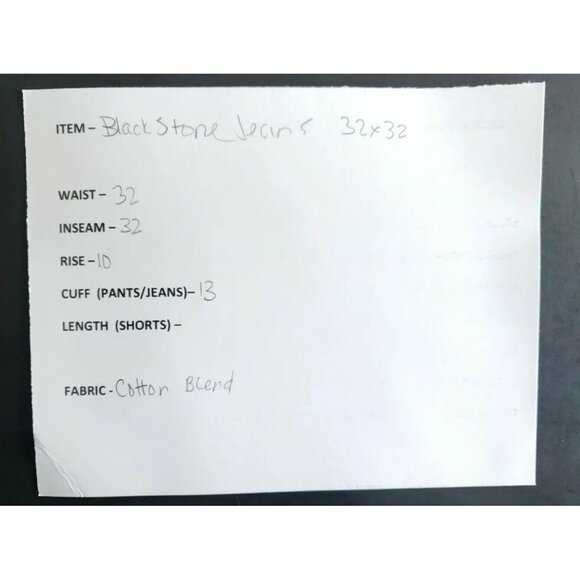 ITEM - Black Stone Jeans 32x32
WAIST - 32
INSEAM - 32
RISE - 10
CUFF (PANTS/JEANS) - 13
LENGTH (SHORTS) -
FABRIC - Cotton Blend